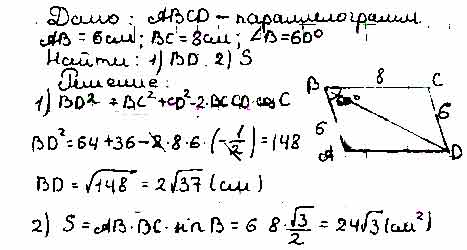 Дано: ABCD – параллелограмм
AB = 6 см; BC = 8 см; ∠B = 60°
Найти: 1) BD 2) S
Решение:
1) BD² = BC² + CD² - 2·BC·CD·cos C
BD² = 64 + 36 - 2·8·6·(-1/2) = 148
BD = √148 = 2√37 (см)
2) S = AB·BC·sin B = 6 8·√3/2 = 24√3 (см²)
B 8 C
60°
6 6
A D